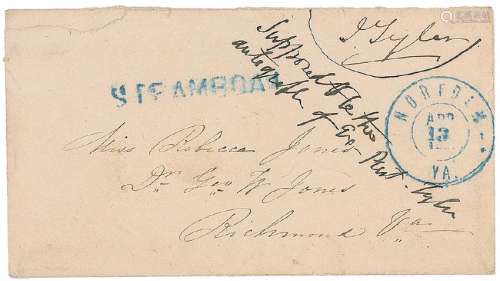 J Tyler
Supposed to be the
autograph of Ex-Prest. Tyler
STEAMBOAT
NORFOLK
APR
13
VA.
Miss Rebecca Jones
Dr Geo W Jones
Richmond Va